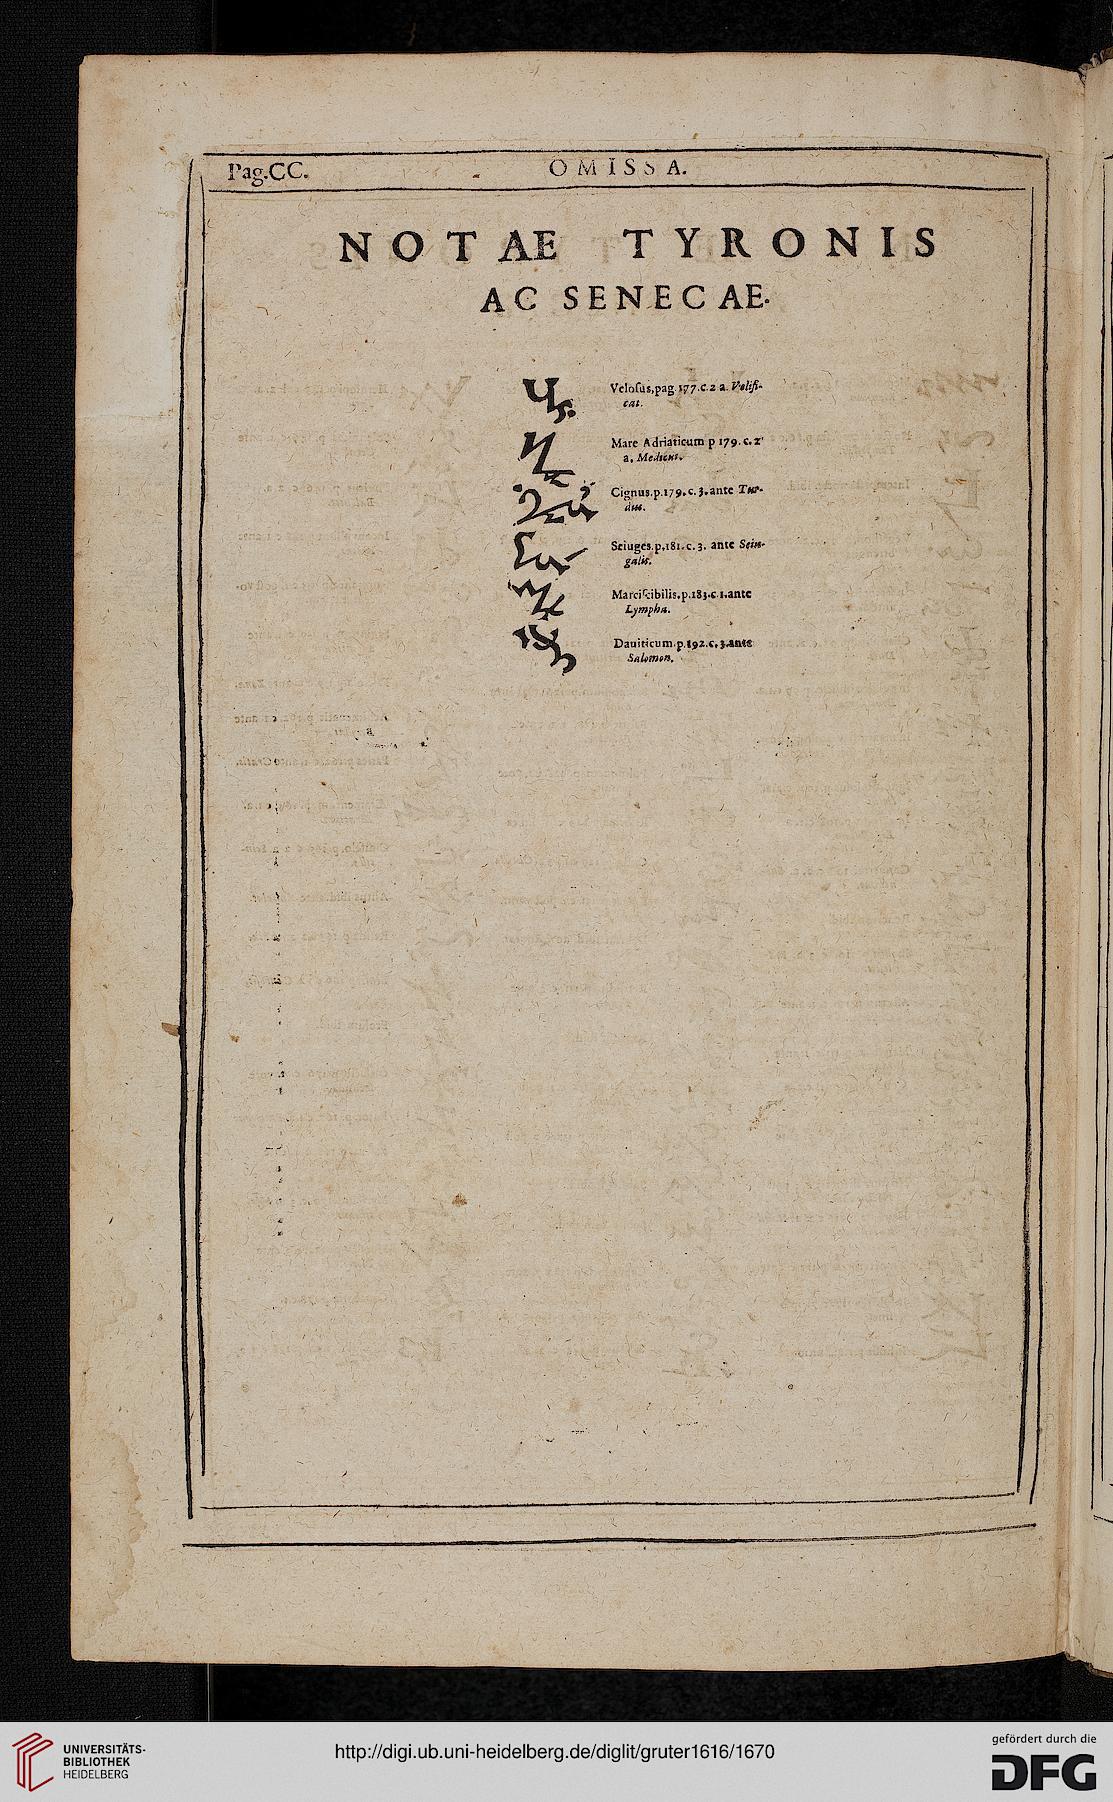 Pag.CC.
OMISSA.
NOTAE TYRONIS
AC SENECAE.
Veloſus, pag. 177.c.2 a. Veliſi-
cat.
Mare Adriaticum p 179. c. 2
a. Medicus.
Cignus.p.179.c.3.ante Tur-
dus.
Seiuges.p.181.c.3. ante Sein-
galis.
Marciſcibilis.p.183.c.1.ante
Lympha.
Dauiticum.p.192.c.3.ante
Salomon.
UNIVERSITÄTS-
BIBLIOTHEK
HEIDELBERG
http://digi.ub.uni-heidelberg.de/diglit/gruter1616/1670
gefördert durch die
DFG